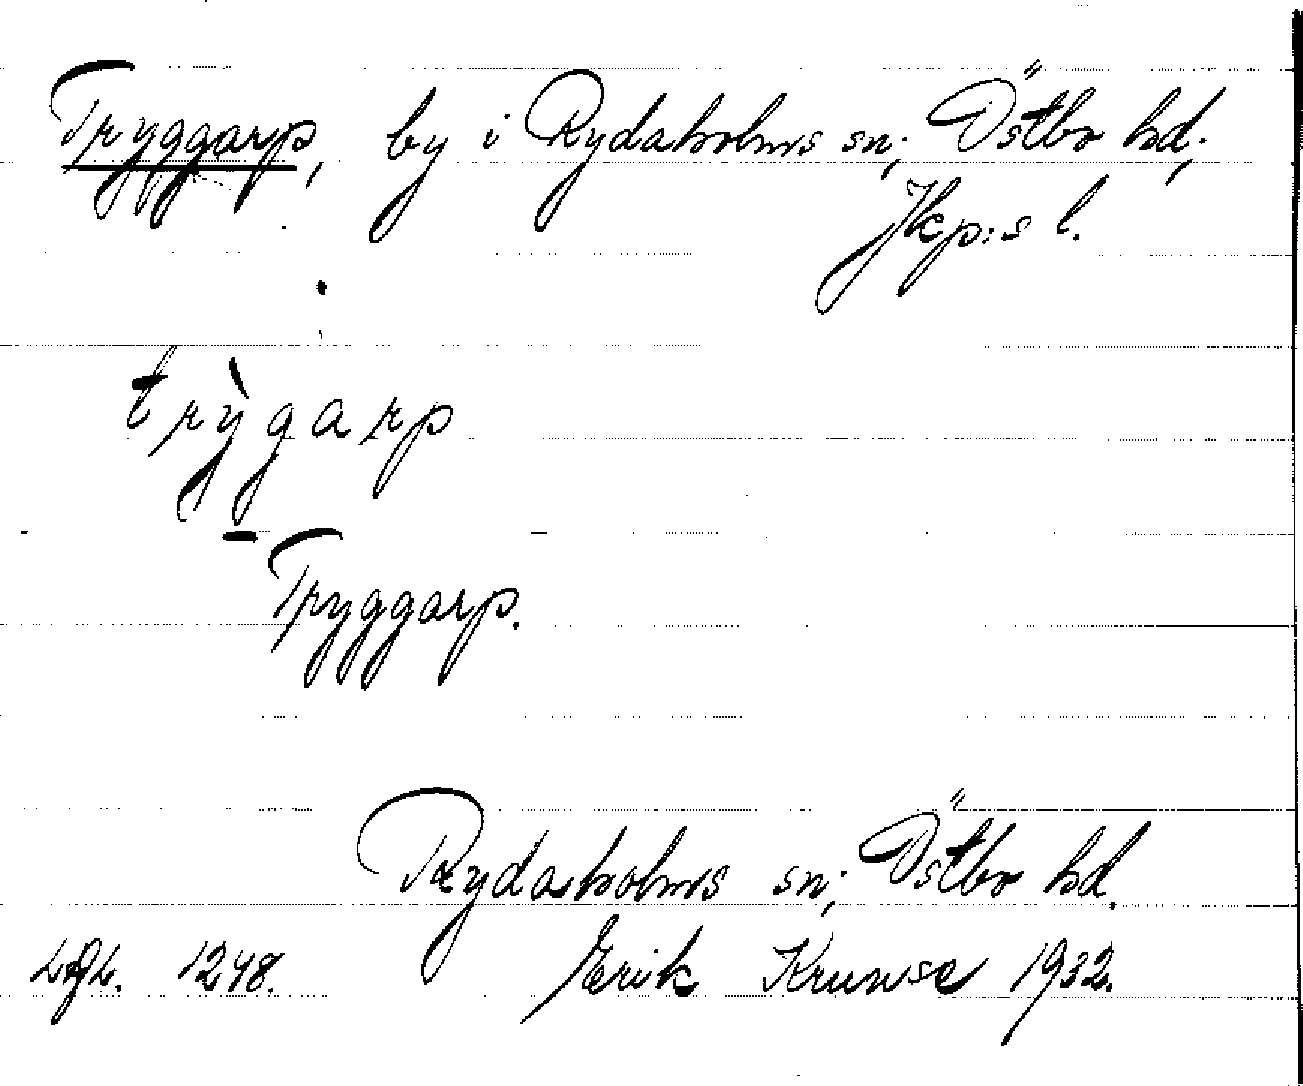 Tryggarp, by i Rydaholms sn; Östbo hd;
Jkp:s l.
trỳgarp
Tryggarp.
Rydaholms sn; Östbo hd.
1248. Erik Krunse 1932.